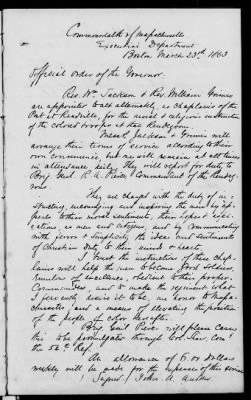 Commonwealth of Massachusetts
Executive Department
Boston March 23rd 1863
Official order of the Governor.
Rev. Wm. Jackson & Rev. William Grimes
are appointed to act alternately, as chaplains of the
Post at Readville, for the moral & religious instruction
of the colored troops at that Rendezvous.
Messrs Jackson & Grimes will
arrange their terms of service according to their
own convenience, but one will remain at all times
in attendance daily. They will report for duty to
Brig Genl. R. A. Peirce, Commandant of the Rendez-
vous.
They are charged with the duty of in-
structing, encouraging and inspiring the men by ap-
peals to their moral sentiments, their hopes &
as men and citizens, and by communicating
with fervor & simplicity the ideas and sentiments
of Christian duty to their minds & hearts.
I trust the instructions of these chap-
lains will help the men to become good soldiers,
obedient to their proper
Commanders, and to make the regiment what
I fervently desire it to be, an honor to Massa-
chusetts, and a means of elevating the position
of the people of color hereafter.
Brig. Genl Peirce will please cause
this to be promulgated through Col. Shaw, Com'g
the 54th Reg.
An allowance of 6.00 dollars
weekly will be made for the expenses of this service
Signed, John A. Andrew